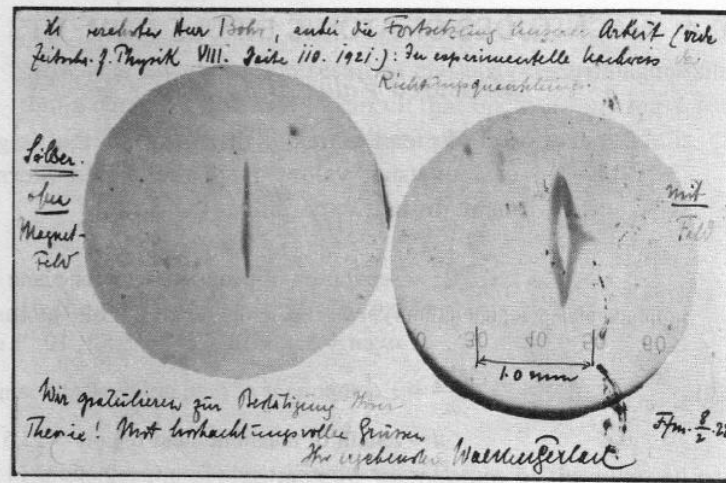 verehrter Herr Bohr, anbei die Fortsetzung unserer Arbeit (vide
Zeitschr. f. Physik VIII. Seite 110. 1921.): Der experimentelle Nachweis der
Richtungsquantelung.
Silber
ohne
Magnet-
Feld
mit
Feld
30 40 50 60
1.0 mm
Wir gratulieren zur Bestätigung Ihrer
Theorie! Mit hochachtungsvollen Grüssen
Ihr ergebenster Walther Gerlach.
Ffm. 8/2. 22